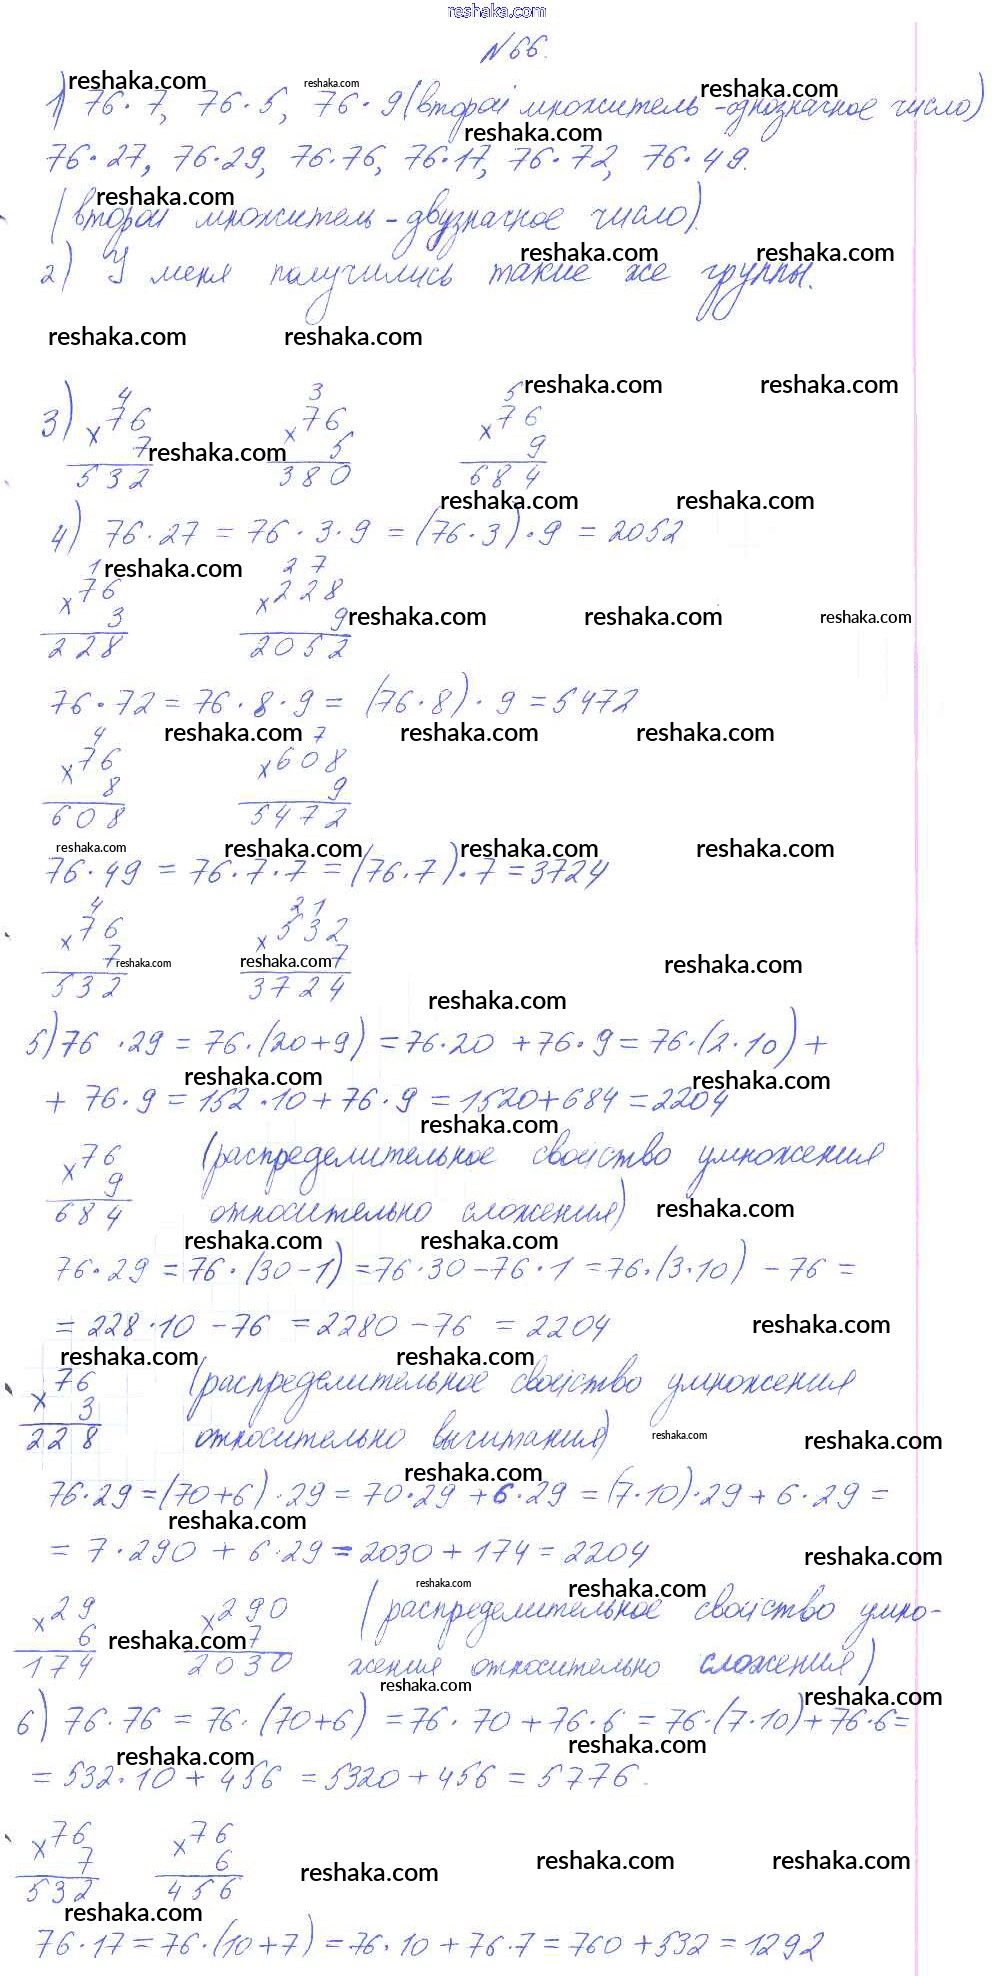 reshaka.com
№66.
1) 76·7, 76·5, 76·9 (второй множитель - однозначное число)
76·27, 76·29, 76·76, 76·17, 76·72, 76·49.
(второй множитель - двузначное число).
2) У меня получились такие же группы.
3) 4 3 5
×76 ×76 ×76
7 5 9
532 380 684
4) 76·27 = 76·3·9 = (76·3)·9 = 2052
1 2 7
×76 ×228
3 9
228 2052
76·72 = 76·8·9 = (76·8)·9 = 5472
4 7
×76 ×608
8 9
608 5472
76·49 = 76·7·7 = (76·7)·7 = 3724
4 2 1
×76 ×532
7 7
532 3724
5) 76·29 = 76·(20+9) = 76·20 + 76·9 = 76·(2·10) +
+ 76·9 = 152·10 + 76·9 = 1520+684 = 2204
×76 (распределительное свойство умножения
9
684 относительно сложения)
76·29 = 76·(30-1) = 76·30 - 76·1 = 76·(3·10) - 76 =
= 228·10 - 76 = 2280 - 76 = 2204
×76 (распределительное свойство умножения
3
228 относительно вычитания)
76·29 = (70+6)·29 = 70·29 + 6·29 = (7·10)·29 + 6·29 =
= 7·290 + 6·29 = 2030 + 174 = 2204
×29 ×290 (распределительное свойство умно-
6 7
174 2030 жения относительно сложения)
6) 76·76 = 76·(70+6) = 76·70 + 76·6 = 76·(7·10) + 76·6 =
= 532·10 + 456 = 5320 + 456 = 5776.
×76 ×76
7 6
532 456
76·17 = 76·(10+7) = 76·10 + 76·7 = 760 + 532 = 1292